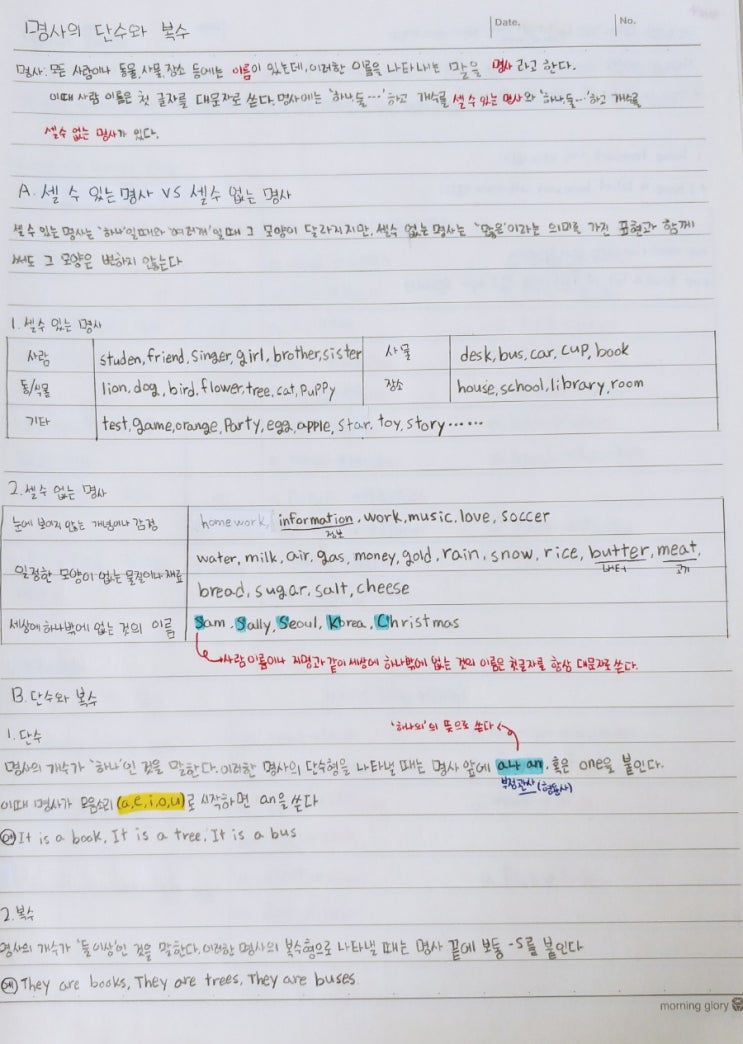 1명사의 단수와 복수
Date. No.
명사: 모든 사람이나 동물, 사물, 장소 등에는 이름이 있는데, 이러한 이름을 나타내는 말을 명사 라고 한다.
이때 사람 이름은 첫 글자를 대문자로 쓴다. 명사에는 '하나, 둘…'하고 개수를 셀 수 있는 명사와 '하나, 둘…'하고 개수를
셀수 없는 명사가 있다.
A. 셀 수 있는 명사 VS 셀수 없는 명사
셀 수 있는 명사는 '하나'일때와 '여러개'일 때 그 모양이 달라지지만, 셀수 없는 명사는 '많은'이라는 의미를 가진 표현과 함께
써도 그 모양은 변하지 않는다
1. 셀수 있는 명사
사람 studen, friend, Singer, girl, brother, sister 사물 desk, bus, car, cup, book
동/식물 lion, dog, bird, flower, tree, cat, puppy 장소 house, school, library, room
기타 test, game, orange, Party, egg, apple, star. toy, story ……
2. 셀수 없는 명사
눈에 보이지 않는 개념이나 감정 homework, information, work, music, love, soccer
정보
일정한 모양이 없는 물질이나 재료 water, milk, air, gas, money, gold, rain, snow, rice, butter, meat,
버터 고기
bread, sugar, salt, cheese
세상에 하나밖에 없는 것의 이름 Sam, Sally, Seoul, Korea, Christmas
사람이름이나 지명과 같이 세상에 하나밖에 없는 것의 이름은 첫글자를 항상 대문자로 쓴다.
B. 단수와 복수
1. 단수
'하나의'의 뜻으로 쓰다
명사의 개수가 '하나'인 것을 말한다. 이러한 명사의 단수형을 나타낼 때는 명사 앞에 a나 an. 혹은 one을 붙인다.
부정관사 (형용사)
이때 명사가 모음소리 (a, e, i, o, u)로 시작하면 an을 쓴다
예 It is a book, It is a tree. It is a bus
2. 복수
명사의 개수가 '둘이상'인 것을 말한다. 이러한 명사의 복수형으로 나타낼 때는 명사 끝에 보통 -s를 붙인다
예 They are books, They are trees, They are buses
morning glory